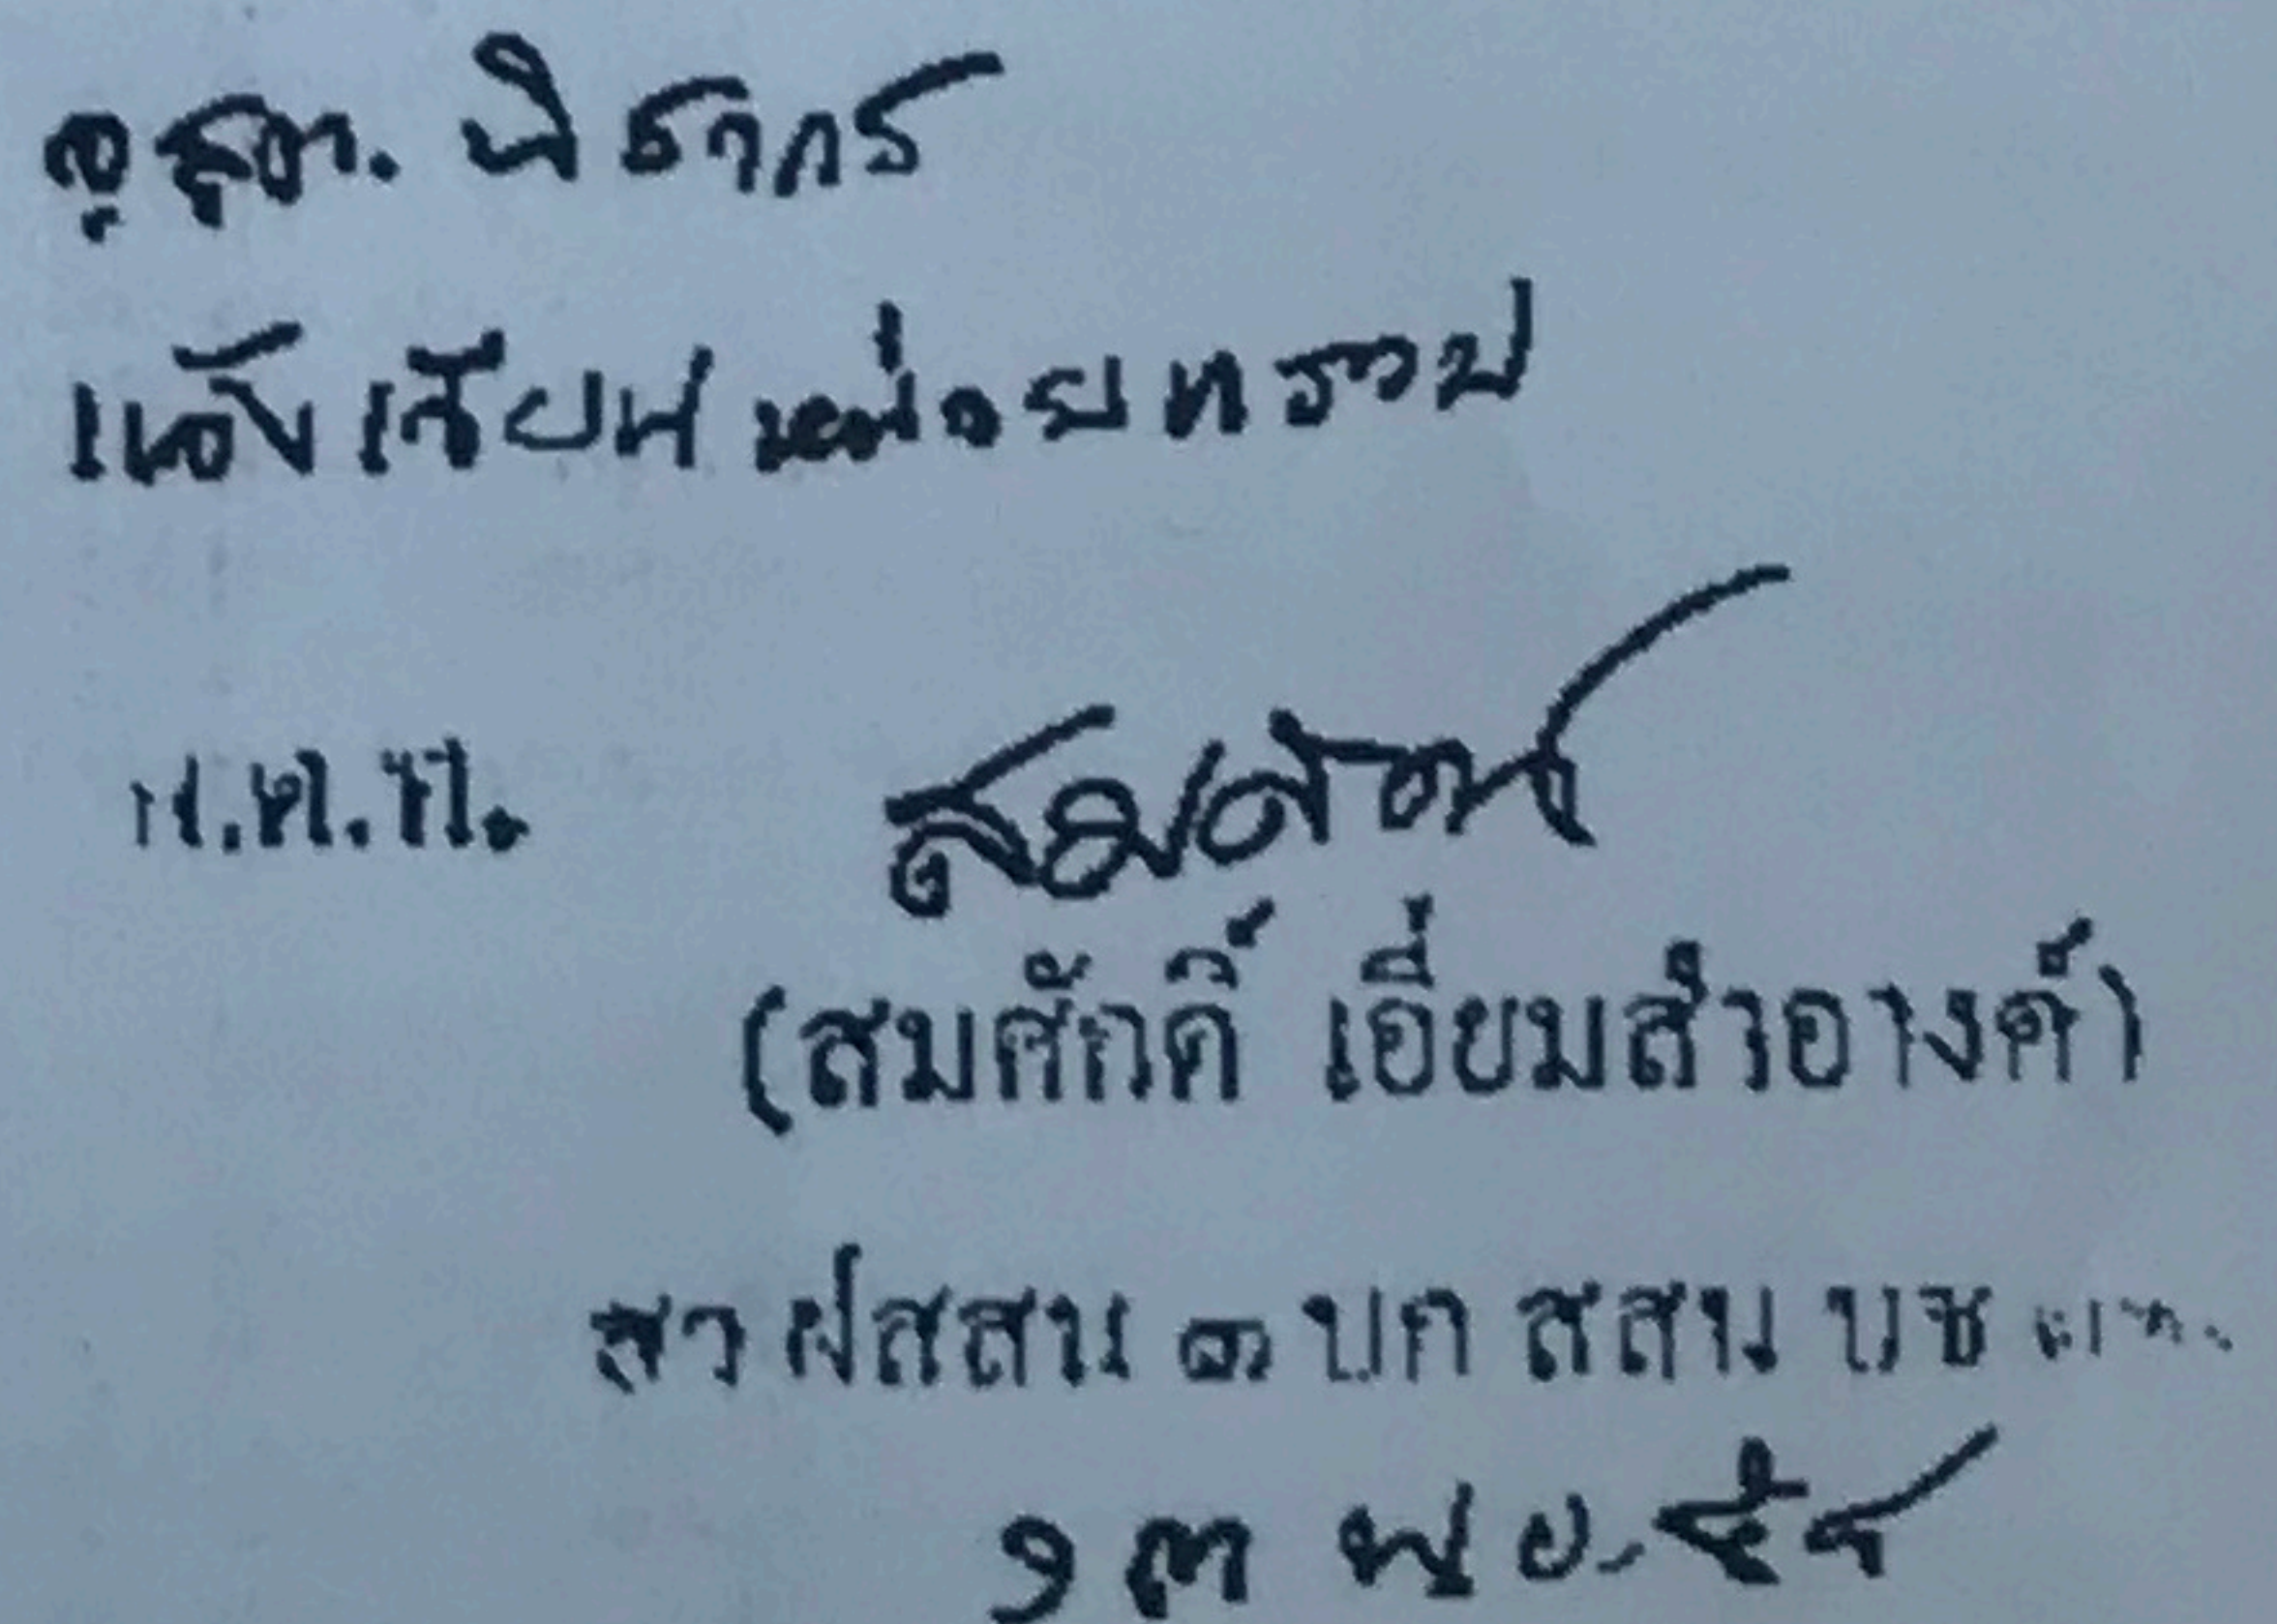 พิธากร
แจ้งเวียนหน่วยทราบ
พ.ต.ท. สมศักดิ์
(สมศักดิ์ เอี่ยมสำอางค์)
สว ฝสสน ๓ บก สสน บช
๑๓ พ.ย.